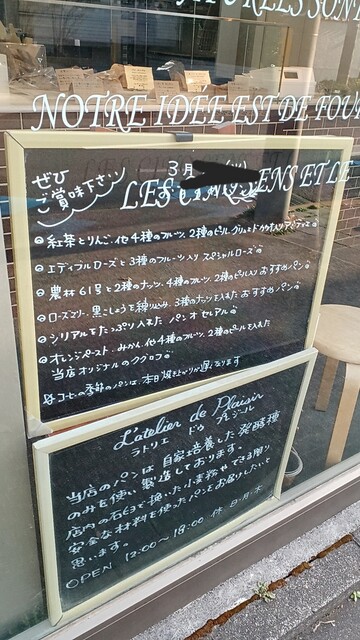 NOTRE IDÉE EST DE FOU
ぜひ
ご賞味下さい
3月
LES
ENS ET LE
紅茶とりんご、他4種のフルーツ、2種のピール
エディブルローズと3種のフルーツ入りスペシャルローズ
農林61号と2種のナッツ、4種のフルーツ、2種のピール入りおすすめパン
黒こしょうを練り込み、3種のナッツを入れたおすすめパン
シリアルをたっぷり入れたパン オ セレアル
オレンジペースト、みかん、他4種のフルーツ、2種のピールを入れた
当店オリジナルのクグロフ
季節のパンは、本日
L'atelier de Plaisir
ラトリエ ドゥ プレジール
当店のパンは自家培養した発酵種
のみを使い製造しております。
店内の石臼で挽いた小麦粉やできる限り
安全な材料を使ったパンをお届けしたいと
思います。
OPEN 12:00〜18:00 休 日・月・木